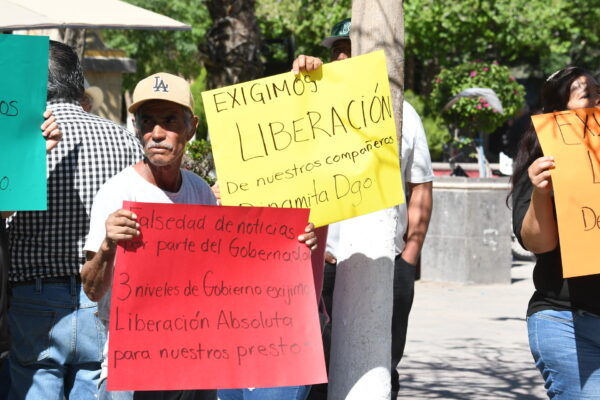 OS
O.
LA
EXIGIMOS
LIBERACIÓN
De nuestros compañeros
Dinamita Dgo
Falsedad de noticias
Por parte del Gobernador
3 niveles de Gobierno exijimos
Liberación Absoluta
para nuestros presto
EX
L
De